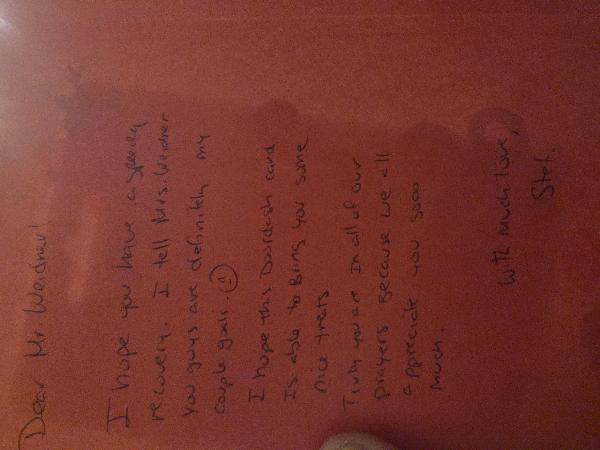 Dear Mr Weidner!
I hope you have a speedy
recovery. I tell Mrs. Weidner
you guys are definitely my
couple goals. ☺
I hope this Doordash card
Is able to Bring you some
nice treats
Truly you are in all of our
prayers Because we all
appreciate you sooo
much.
With much love,
Stef.